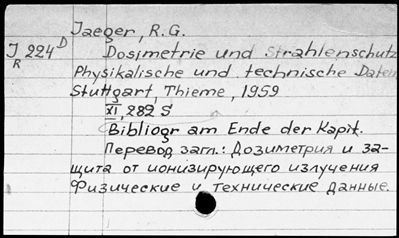 Jaeger, R.G.
J 224 D
R
Dosimetrie und Strahlenschutz
Physikalische und technische Daten
Stuttgart, Thieme, 1959
XI, 282 S
Bibliogr am Ende der Kapit.
Перевод загл.: Дозиметрия и за-
щита от ионизирующего излучения
Физические и технические данные.